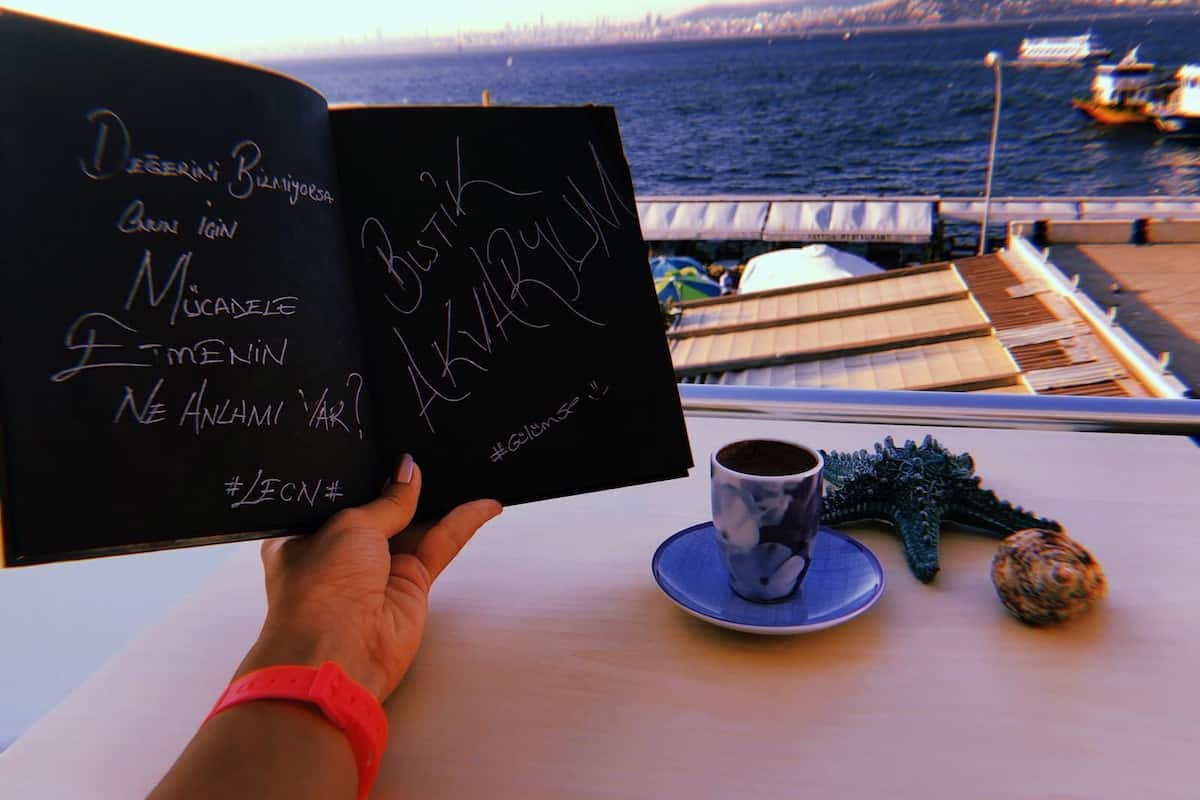 DEĞERİNİ BİLMİYORSA
ONUN İÇİN
MÜCADELE
ETMENİN
NE ANLAMI VAR?
#LECN#
BUTİK
AKVARYUM
#GÜLÜMSE
RESTAURANT